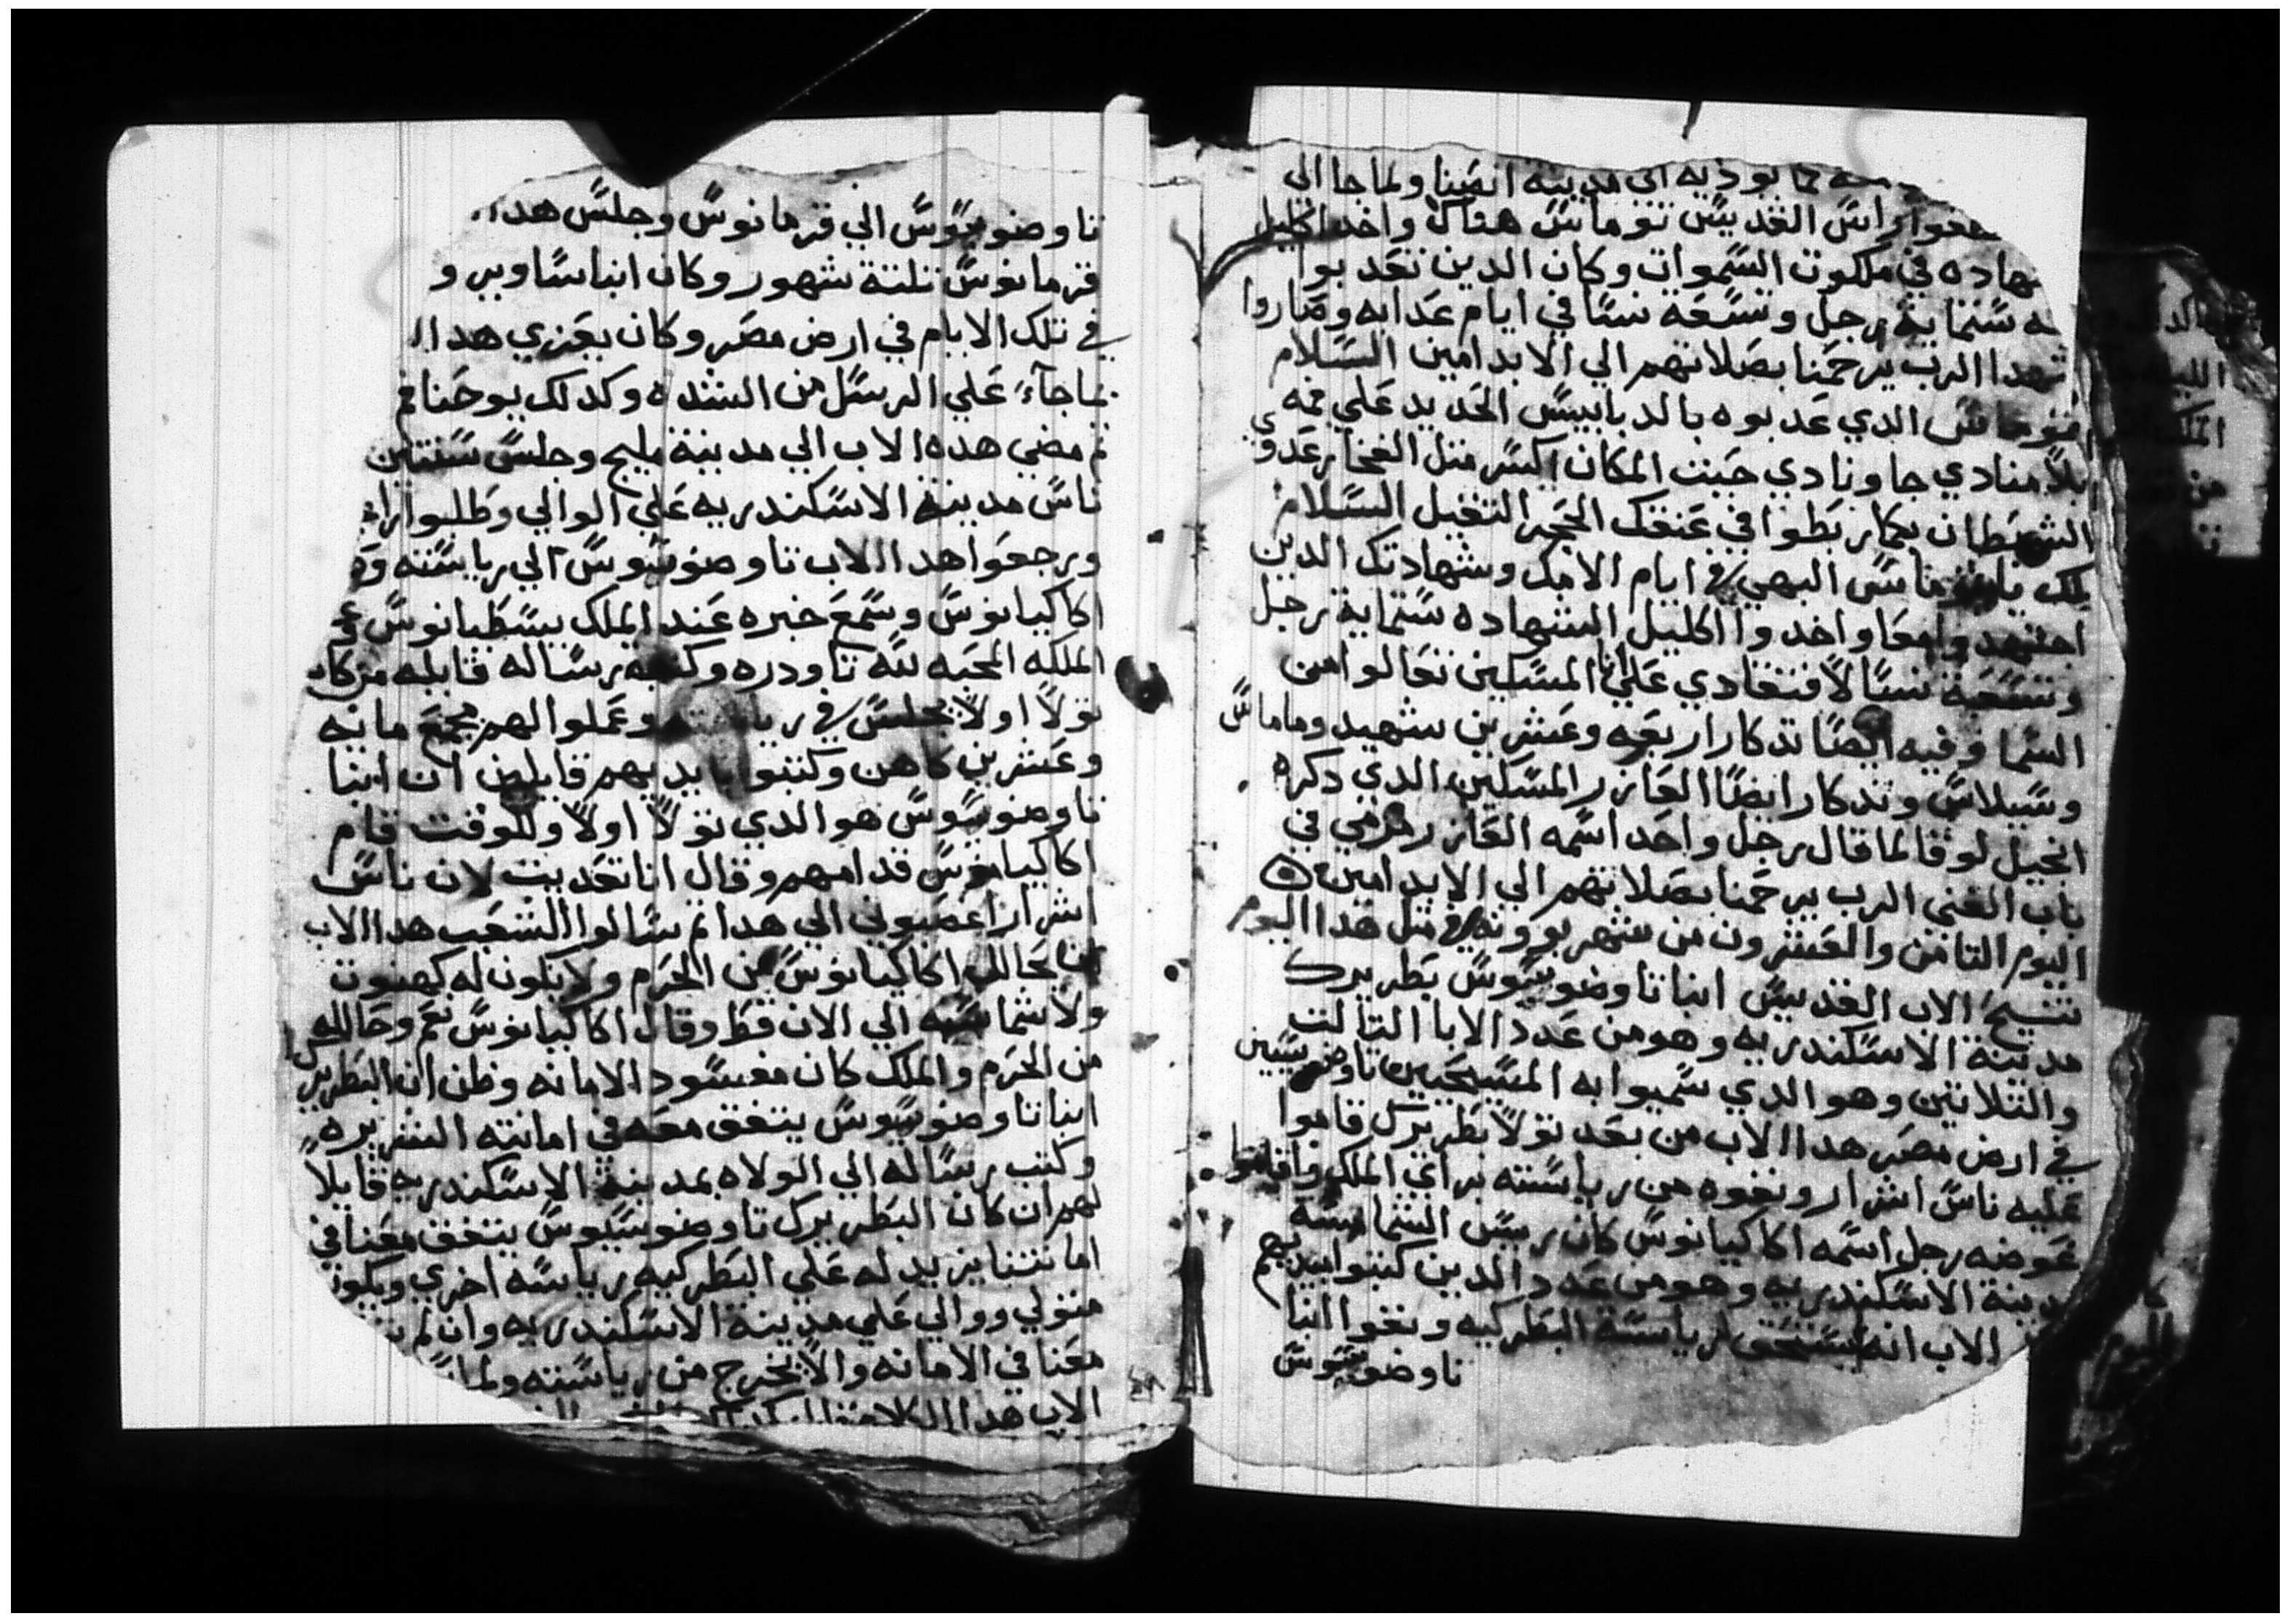 بوديه الى مدينة انصنا ولما جا الى
راس القديس توماس هناك واخد اكليل
في ملكوت السموات وكان الدين تعدبوا
ستماية رجل وتسعه نسا في ايام عدابه وصاروا
شهدا الرب يرحمنا بصلاتهم الي الابد امين السلام
الدي عدبوه بالدبابيس الحديد علي فمه
منادي جا ونادي حيت المكان اكسر متل الفخار عدو
الشيطان ربطوا في عنقك الحجر التقيل السلام
لك يا توماس البهي في ايام الامك وشهادتك الدين
معا واخدوا اكليل الشهاده ستماية رجل
وتسعة نسا لافنتقادي علي انا المسكين تعالوا من
السما وفيه ايضا تدكار اربعه وعشرين شهيد وماماس
وسيلاس وتدكار ايضا العازر المسكين الدي دكره
انجيل لوقا لما قال رجل واحد اسمه العازر مرمي في
باب الغني الرب يرحمنا بصلاتهم الي الابد امين
اليوم التامن والعشرون من شهر بوونه في متل هدا اليوم
تنيح الاب القديس ابنا تاوضوسيوس بطريرك
مدينة الاسكندريه وهو من عدد الابا التالت
والتلاتين وهو الدي سميوا به المسيحيين تاوضوسيين
في ارض مصر هدا الاب من بعد تولا بطريرك قاموا
عليه ناس اشرار ونفوه من رياسته براي الملك واقاموا
عوضه رجل اسمه اكاكيانوس كان رييس الشمامسة
مدينة الاسكندريه وهو من عدد الدين كتبوا بيديهم
الاب انه يستحق لرياسة البطركيه ونفوا ابنا
تاوضوسيوس
تاوضوسيوس الي قرمانوس وجلس هدا
قرمانوس تلتة شهور وكان ابنا ساويرو
في تلك الايام في ارض مصر وكان يعزي هدا
بما جاء علي الرسل من الشده وكدلك يوحنا فم
تم مضي هده الاب الي مدينة مليج وجلس سنتين
ناس مدينة الاسكندريه علي الوالي وطلبوا
ورجعوا هدا الاب تاوضوسيوس الي رياسته
اكاكيانوس وسمع خبره عند الملك يسطيانوس
الملكه المحبه لله تاودره وكتب رساله قايله من كان
تولا اولا يجلس في وعملوا لهم مجمع مايه
وعشرين كاهن وكتبوا بايديهم قايلين ان ابنا
تاوضوسيوس هو الدي تولا اولا وللوقت قام
اكاكيانوس قدامهم وقال انا تعديت لان ناس
اشرار اغصبوني الي هدا تم سالوا الشعب هدا الاب
ان يحالل اكاكيانوس من الحرم ولا يكون له كهنوت
ولا شماسيه الي الان قط وقال اكاكيانوس نعم وحالله
من الحرم والملك كان مفسود الامانه وظن ان البطريرك
ابنا تاوضوسيوس يتفق معه في امانته الشريره
وكتب رساله الي الولاه بمدينة الاسكندريه قايلا
لهم ان كان البطريرك تاوضوسيوس يتفق معنا في
امانتنا يزيد له علي البطركيه رياسه اخري ويكون
متولي ووالي علي مدينة الاسكندريه وان لم
معنا في الامانه والا يخرج من رياسته ولما
الاب هدا الكلام